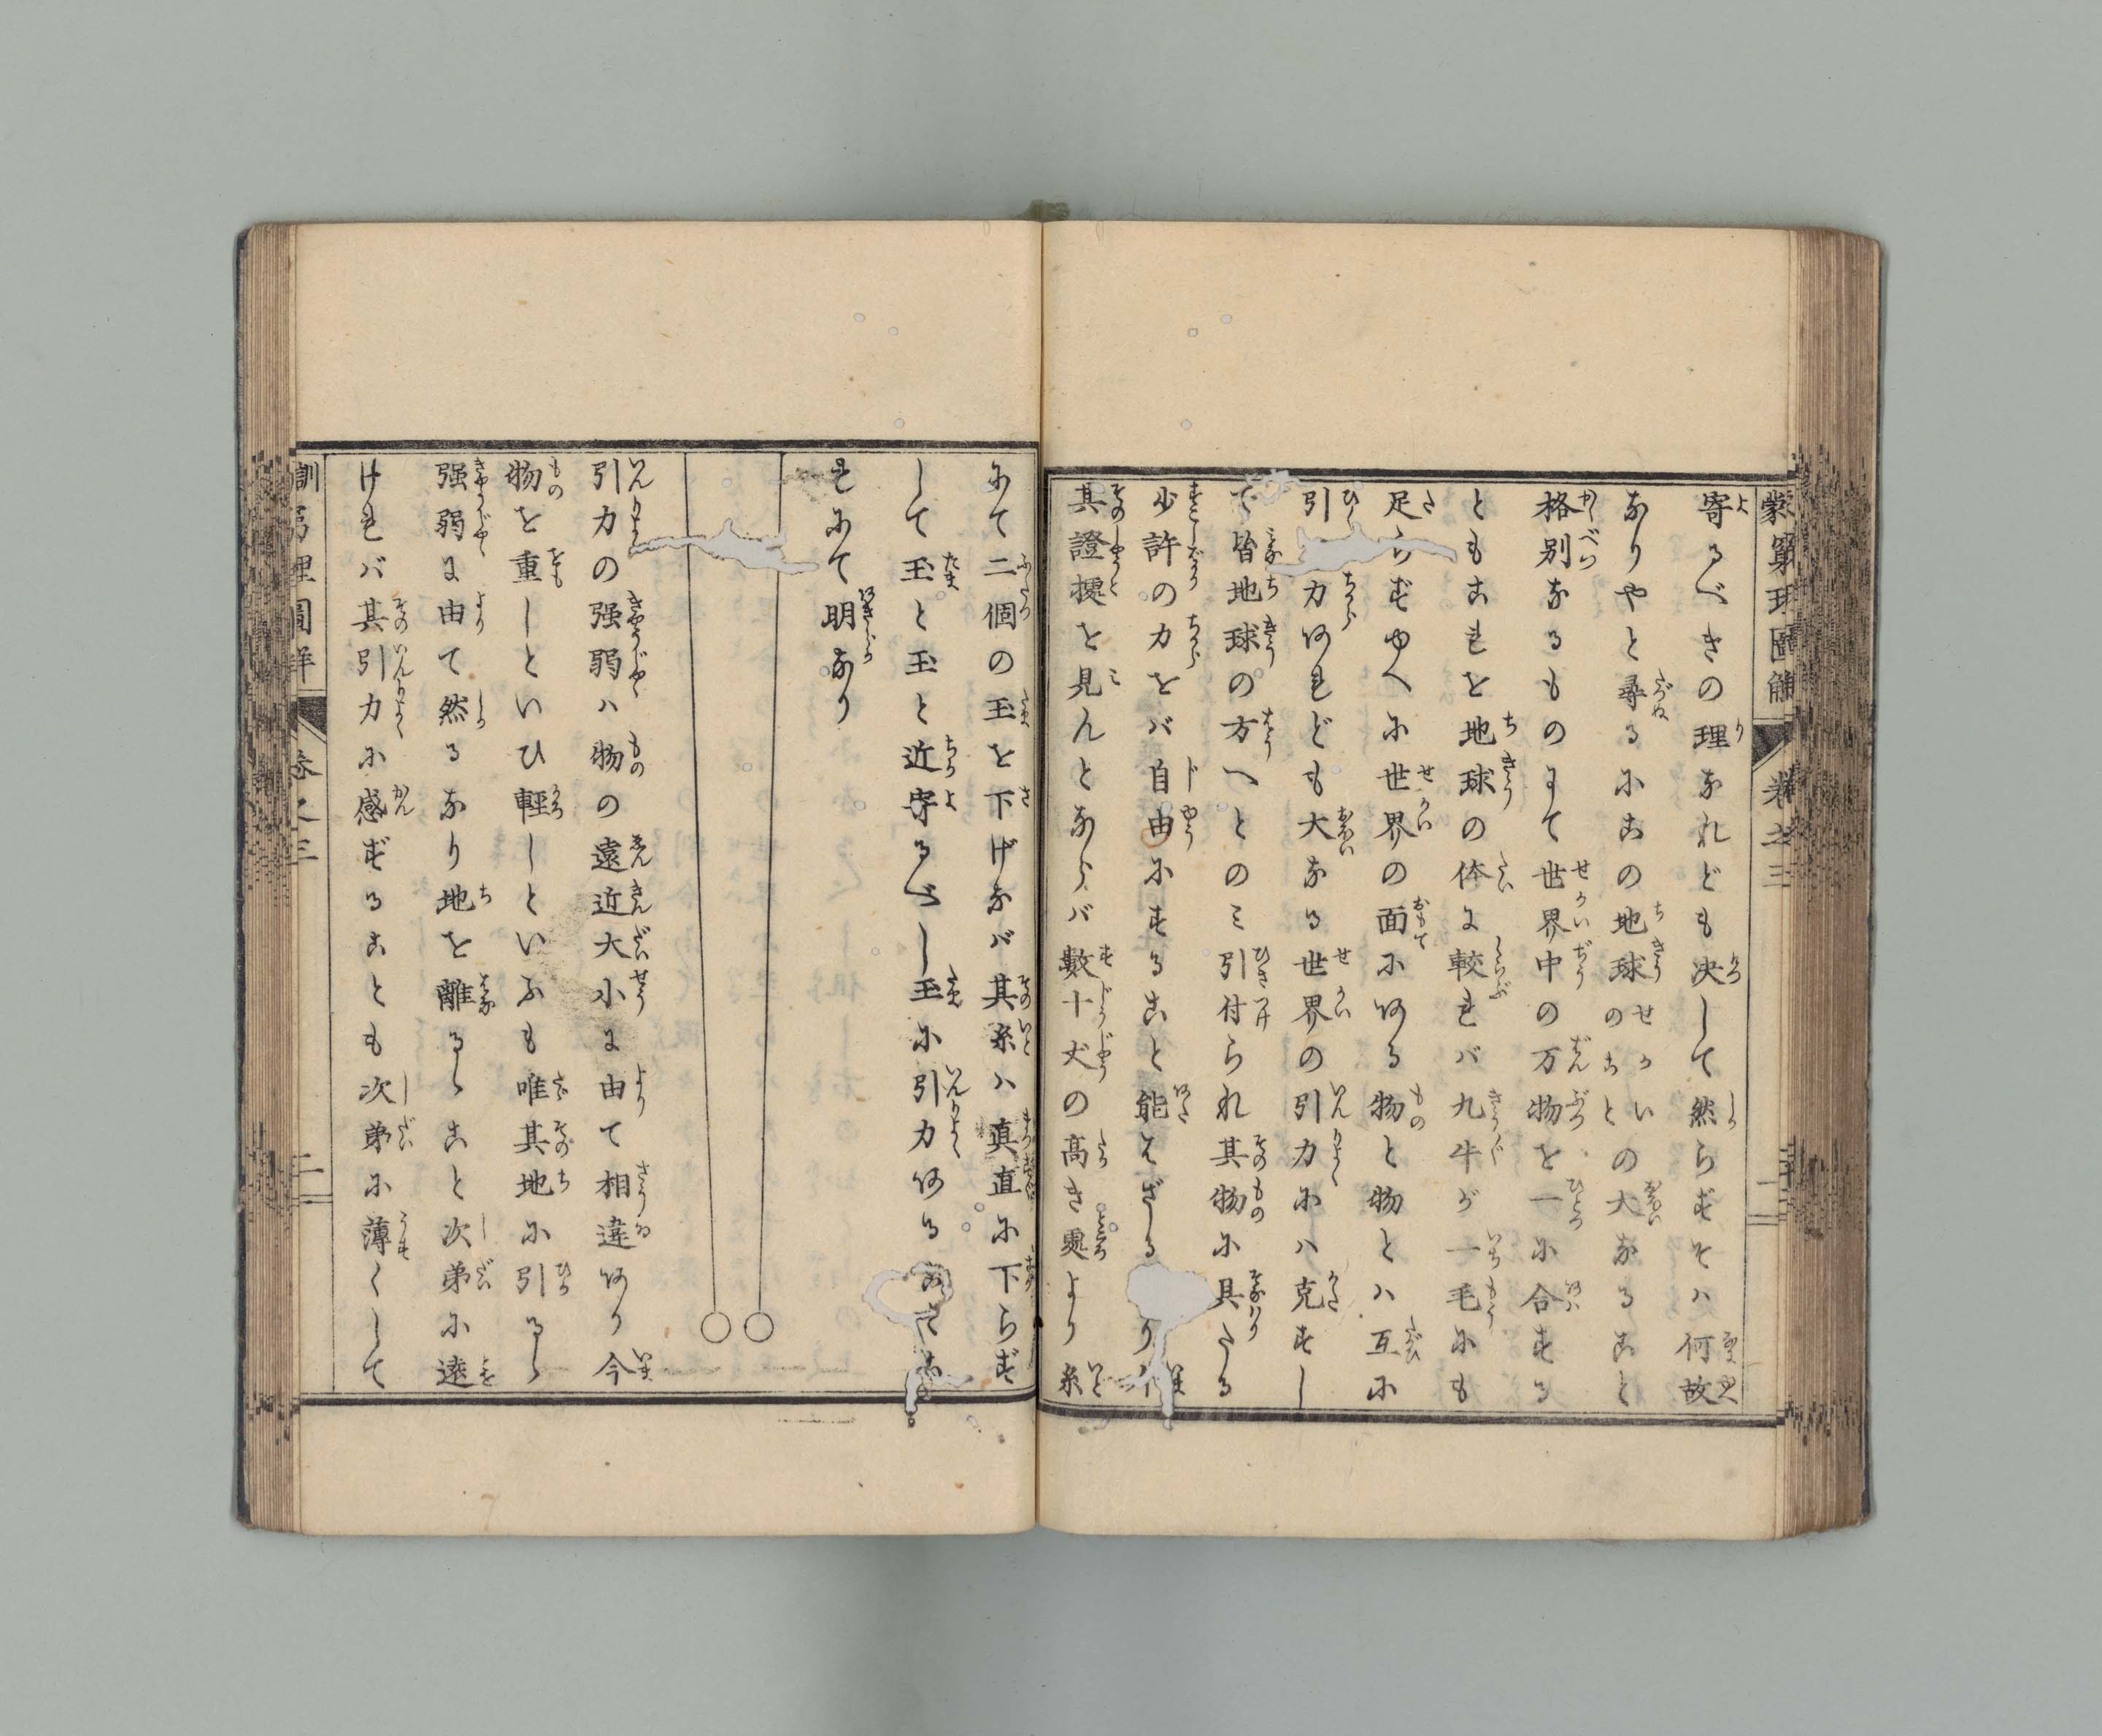 寄るべきの理なれども決して然らずそハ何故
なりやと尋るにこの地球のせかいのことの大なること
格別なるものにて世界中の万物を一に合する
ともこれを地球の体に較れバ九牛が一毛にも
足らずゆへに世界の面にある物と物とハ互に
引力あれども大なる世界の引力にハ克ずし
て皆地球の方へとのミ引付られ其物に具たる
少許の力をバ自由にすること能ハざるなり今
其證拠を見んとならバ數十丈の高き處より糸
にて二個の玉を下げなバ其糸ハ真直に下らず
して玉と玉と近寄るべし玉に引力あること
れにて明なり
引力の强弱ハ物の遠近大小に由て相違あり今
物を重しといひ輕しといふも唯其地に引るゝ
强弱に由て然るなり地を離るゝこと次第に遠
けれバ其引力に感ずることも次第に薄くして